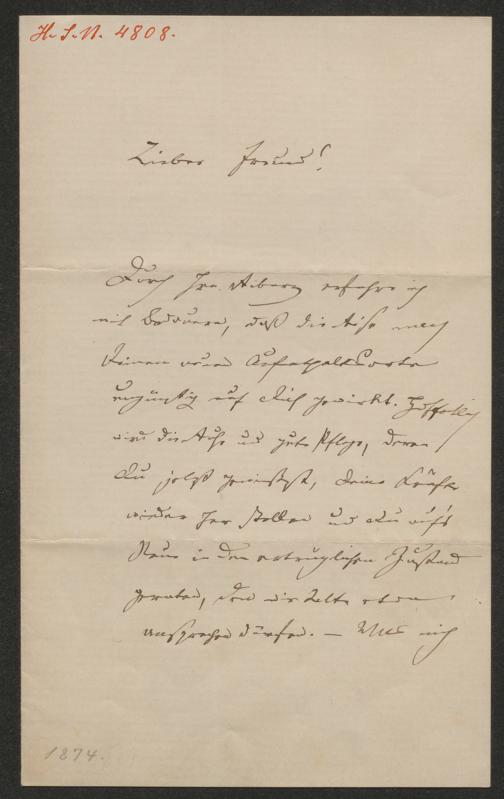 H. I. N. 4808.
Lieber Freund!
Durch Frn. Aiberg erfahre ich
mit Bedauern, daß die Reise nach
Deinem neuen Aufenthaltsorte
ungünstig auf Dich gewirkt. Hoffentlich
wird die Ruhe und gute Pflege, deren
Du jetzt genießest, Deine Kräfte
wieder herstellen und Du auf's
Neue in den erträglichen Zustand
gerathen, den wir Alte etwa
ansprechen dürfen. — Was mich
1874.